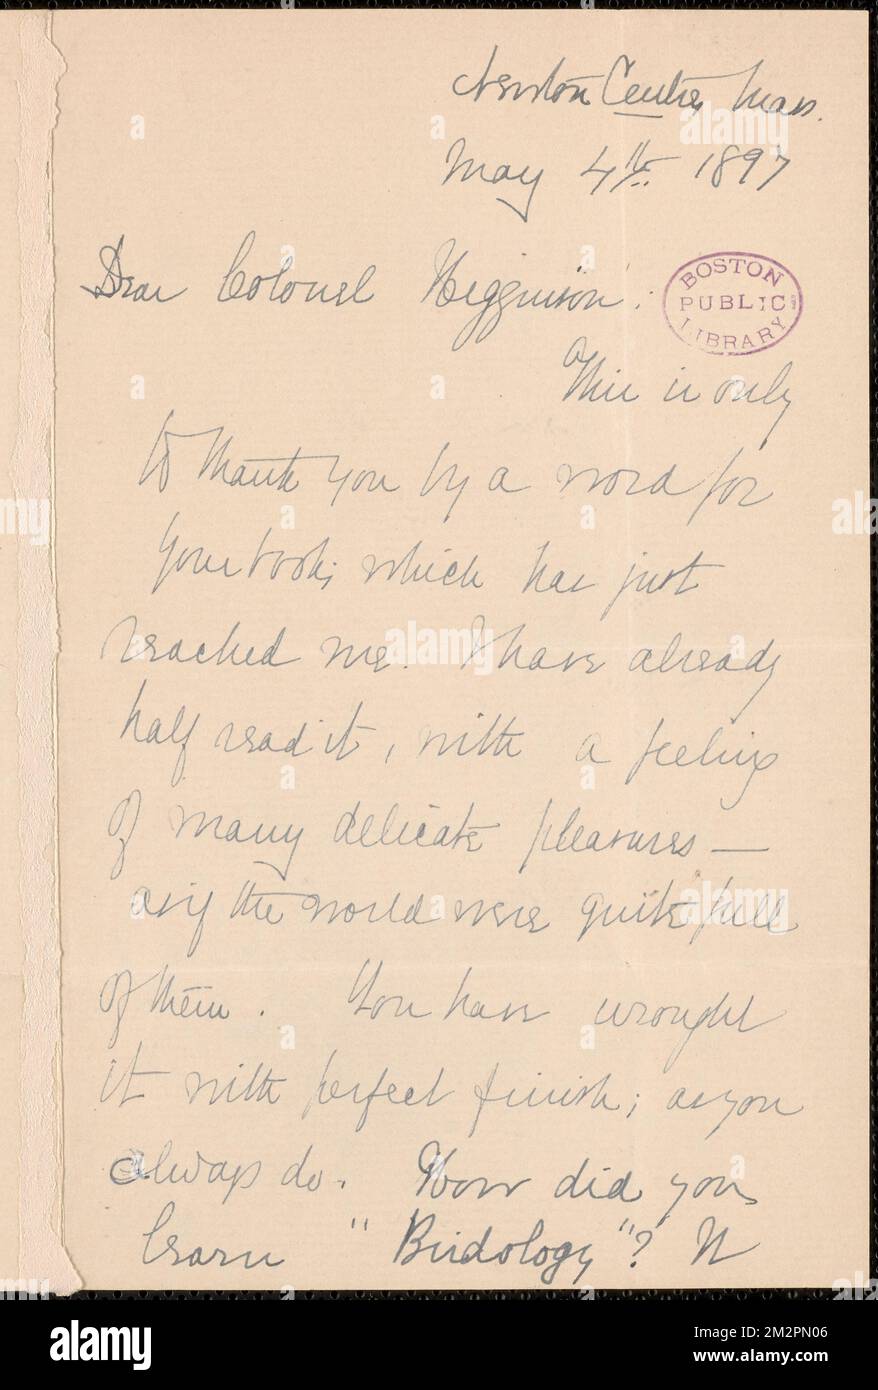 Newton Centre, Mass.
May 4th 1897
Dear Colonel Higginson:
BOSTON
PUBLIC
LIBRARY
This is only
to thank you by a word for
your book; which has just
reached me. I have already
half read it, with a feeling
of many delicate pleasures —
as if the world were quite full
of them. You have wrought
it with perfect finish; as you
always do. How did you
learn "Birdology"? It
alamy
Image ID: 2M2PN06
www.alamy.com